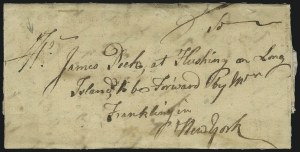 James at Flushing on Long
Island to be Forward by Mr
Franklin in
New York